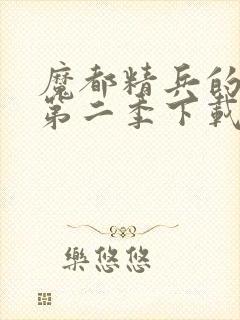 魔都精兵的
第二季下載
樂悠悠